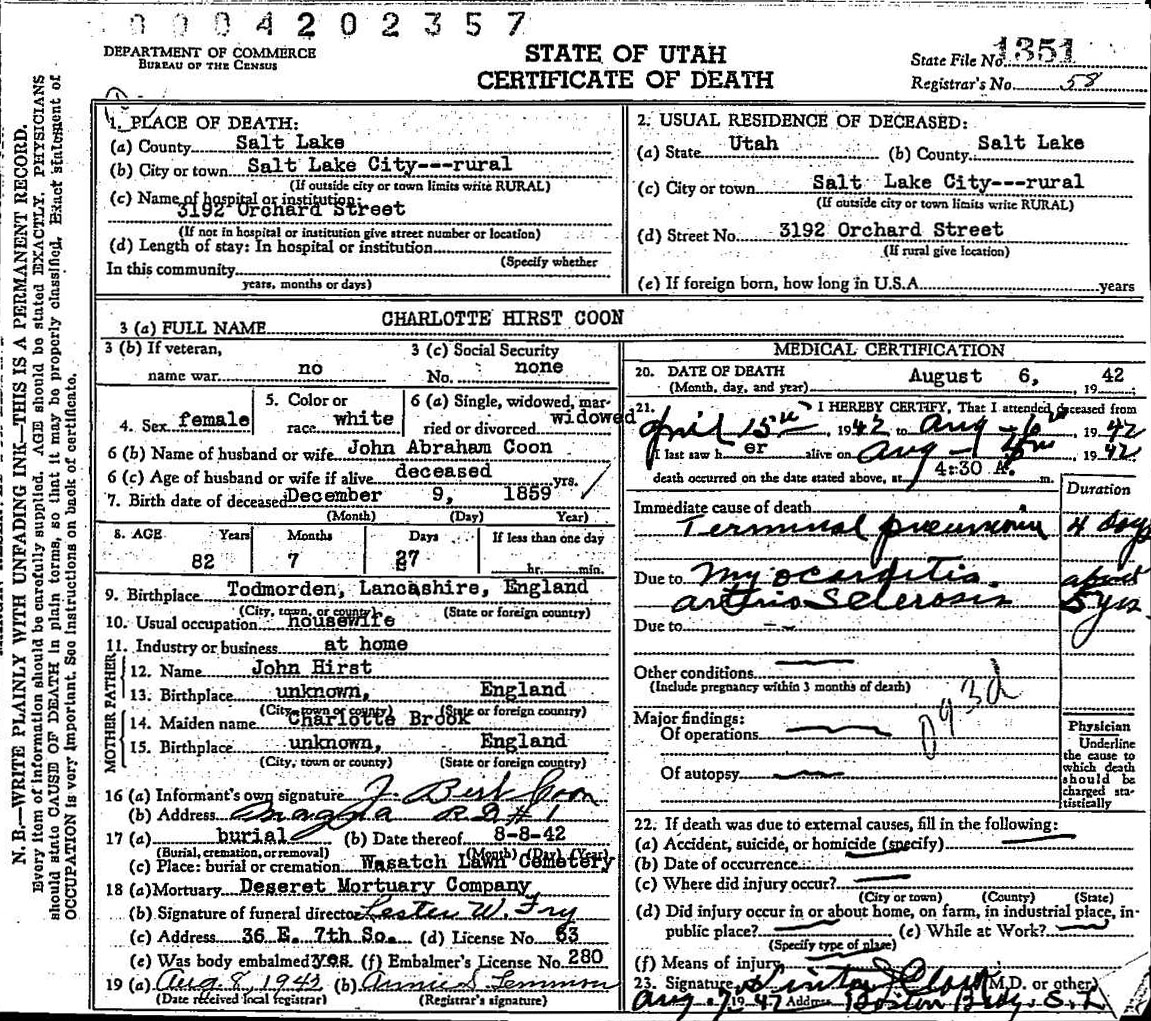 0004202357
DEPARTMENT OF COMMERCE
BUREAU OF THE CENSUS
STATE OF UTAH
CERTIFICATE OF DEATH
State File No. 1351
Registrar's No. 58
N. B.—WRITE PLAINLY WITH UNFADING INK—THIS IS A PERMANENT RECORD.
Every item of information should be carefully supplied. AGE should be stated EXACTLY. PHYSICIANS
should state CAUSE OF DEATH in plain terms, so that it may be properly classified. Exact statement of
OCCUPATION is very important. See instructions on back of certificate.
1. PLACE OF DEATH:
(a) County Salt Lake
(b) City or town Salt Lake City---rural
(If outside city or town limits write RURAL)
(c) Name of hospital or institution:
3192 Orchard Street
(If not in hospital or institution give street number or location)
(d) Length of stay: In hospital or institution
(Specify whether
In this community
years, months or days)
2. USUAL RESIDENCE OF DECEASED:
(a) State Utah (b) County Salt Lake
(c) City or town Salt Lake City---rural
(If outside city or town limits write RURAL)
(d) Street No. 3192 Orchard Street
(If rural give location)
(e) If foreign born, how long in U.S.A. years
3 (a) FULL NAME CHARLOTTE HIRST COON
3 (b) If veteran, 3 (c) Social Security
name war no No. none
4. Sex female 5. Color or race white 6 (a) Single, widowed, married or divorced widowed
6 (b) Name of husband or wife John Abraham Coon
6 (c) Age of husband or wife if alive deceased yrs.
7. Birth date of deceased December 9, 1859
(Month) (Day) Year)
8. AGE Years Months Days If less than one day
82 7 27 hr. min.
9. Birthplace Todmorden, Lancashire, England
(City, town, or county) (State or foreign country)
10. Usual occupation housewife
11. Industry or business at home
FATHER
12. Name John Hirst
13. Birthplace unknown, England
(City, town or county) (State or foreign country)
MOTHER
14. Maiden name Charlotte Brook
15. Birthplace unknown, England
(City, town or county) (State or foreign country)
16 (a) Informant's own signature J. Bert Coon
(b) Address Magna R D # 1
17 (a) burial (b) Date thereof 8-8-42
(Burial, cremation, or removal) (Month) (Day) (Year)
(c) Place: burial or cremation Wasatch Lawn Cemetery
18 (a) Mortuary Deseret Mortuary Company
(b) Signature of funeral director Lester W. Fry
(c) Address 36 E. 7th So. (d) License No. 63
(e) Was body embalmed yes. (f) Embalmer's License No. 280
19 (a) Aug. 8, 1942 (b) Annie S. Lemmon
(Date received local registrar) (Registrar's signature)
MEDICAL CERTIFICATION
20. DATE OF DEATH August 6, 1942
(Month, day, and year)
21. I HEREBY CERTIFY, That I attended deceased from
April 15th 1942 to Aug - 6th, 1942
I last saw her alive on Aug - 1942
death occurred on the date stated above, at 4:30 A. m.
Duration
Immediate cause of death
Terminal pneumonia 4 days
Due to Myocarditis. about
arthrio Sclerosis 5 yrs
Due to
Other conditions
(Include pregnancy within 3 months of death)
093d
Major findings:
Of operations
Of autopsy
Physician
Underline
the cause to
which death
should be
charged sta-
tistically
22. If death was due to external causes, fill in the following:
(a) Accident, suicide, or homicide (specify)
(b) Date of occurrence
(c) Where did injury occur?
(City or town) (County) (State)
(d) Did injury occur in or about home, on farm, in industrial place, in-
public place? (e) While at Work?
(Specify type of place)
(f) Means of injury
23. Signature M.D. or other)
Aug 7 1942 Address Boston Bldg. S. L